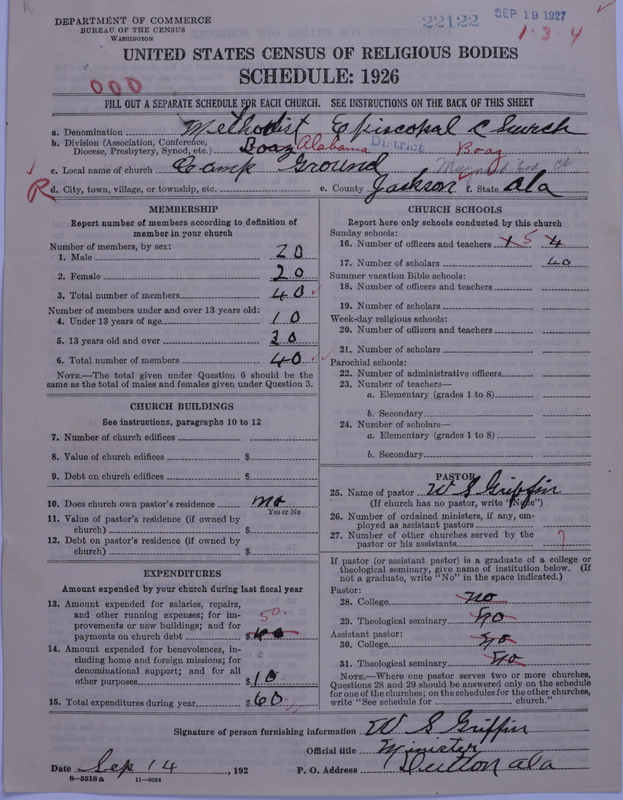 DEPARTMENT OF COMMERCE
BUREAU OF THE CENSUS
WASHINGTON
22122
SEP 19 1927
1 3 4
UNITED STATES CENSUS OF RELIGIOUS BODIES
SCHEDULE: 1926
000
FILL OUT A SEPARATE SCHEDULE FOR EACH CHURCH. SEE INSTRUCTIONS ON THE BACK OF THIS SHEET
a. Denomination Methodist Episcopal Church
b. Division (Association, Conference, Diocese, Presbytery, Synod, etc.) Boaz Alabama District Boaz
c. Local name of church Camp Ground
R d. City, town, village, or township, etc. e. County Jackson f. State Ala
MEMBERSHIP
Report number of members according to definition of member in your church
Number of members, by sex:
1. Male 20
2. Female 20
3. Total number of members 40
Number of members under and over 13 years old:
4. Under 13 years of age 10
5. 13 years old and over 30
6. Total number of members 40
NOTE.—The total given under Question 6 should be the same as the total of males and females given under Question 3.
CHURCH BUILDINGS
See instructions, paragraphs 10 to 12
7. Number of church edifices
8. Value of church edifices $
9. Debt on church edifices $
10. Does church own pastor's residence no
Yes or No
11. Value of pastor's residence (if owned by church) $
12. Debt on pastor's residence (if owned by church) $
EXPENDITURES
Amount expended by your church during last fiscal year
13. Amount expended for salaries, repairs, and other running expenses; for improvements or new buildings; and for payments on church debt $ 50
14. Amount expended for benevolences, including home and foreign missions; for denominational support; and for all other purposes $ 10
15. Total expenditures during year $ 60
CHURCH SCHOOLS
Report here only schools conducted by this church
Sunday schools:
16. Number of officers and teachers 1 5 4
17. Number of scholars 40
Summer vacation Bible schools:
18. Number of officers and teachers
19. Number of scholars
Week-day religious schools:
20. Number of officers and teachers
21. Number of scholars
Parochial schools:
22. Number of administrative officers
23. Number of teachers—
a. Elementary (grades 1 to 8)
b. Secondary
24. Number of scholars—
a. Elementary (grades 1 to 8)
b. Secondary
PASTOR
25. Name of pastor W S Griffin
(If church has no pastor, write "None")
26. Number of ordained ministers, if any, employed as assistant pastors
27. Number of other churches served by the pastor or his assistants
If pastor (or assistant pastor) is a graduate of a college or theological seminary, give name of institution below. (If not a graduate, write "No" in the space indicated.)
Pastor:
28. College no
29. Theological seminary no
Assistant pastor:
30. College no
31. Theological seminary no
NOTE.—Where one pastor serves two or more churches, Questions 28 and 29 should be answered only on the schedule for one of the churches; on the schedules for the other churches, write "See schedule for church."
Signature of person furnishing information W S Griffin
Official title Minister
Date Sep 14, 192 P. O. Address Dutton ala
8—5518a 11—9064